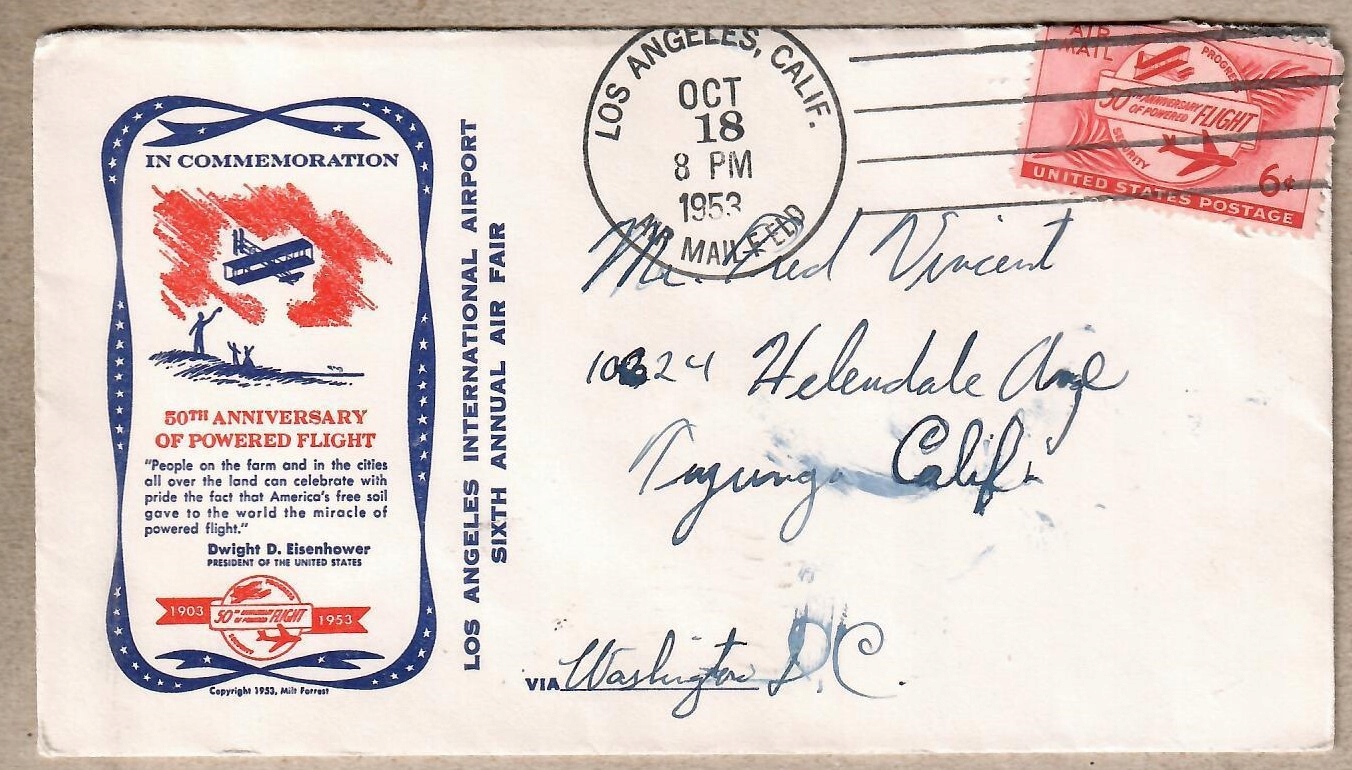 IN COMMEMORATION
50TH ANNIVERSARY
OF POWERED FLIGHT
"People on the farm and in the cities
all over the land can celebrate with
pride the fact that America's free soil
gave to the world the miracle of
powered flight."
Dwight D. Eisenhower
PRESIDENT OF THE UNITED STATES
1903
50TH ANNIVERSARY OF POWERED FLIGHT
SECURITY
1953
Copyright 1953, Milt Forrest
LOS ANGELES INTERNATIONAL AIRPORT
SIXTH ANNUAL AIR FAIR
LOS ANGELES, CALIF.
OCT
18
8 PM
1953
AIR MAIL FIELD
AIR
MAIL
PROGRESS
50TH ANNIVERSARY
OF POWERED FLIGHT
SECURITY
6¢
UNITED STATES POSTAGE
Mr. Fred Vincent
10324 Helendale Ave
Tujunga Calif.
VIA Washington D.C.